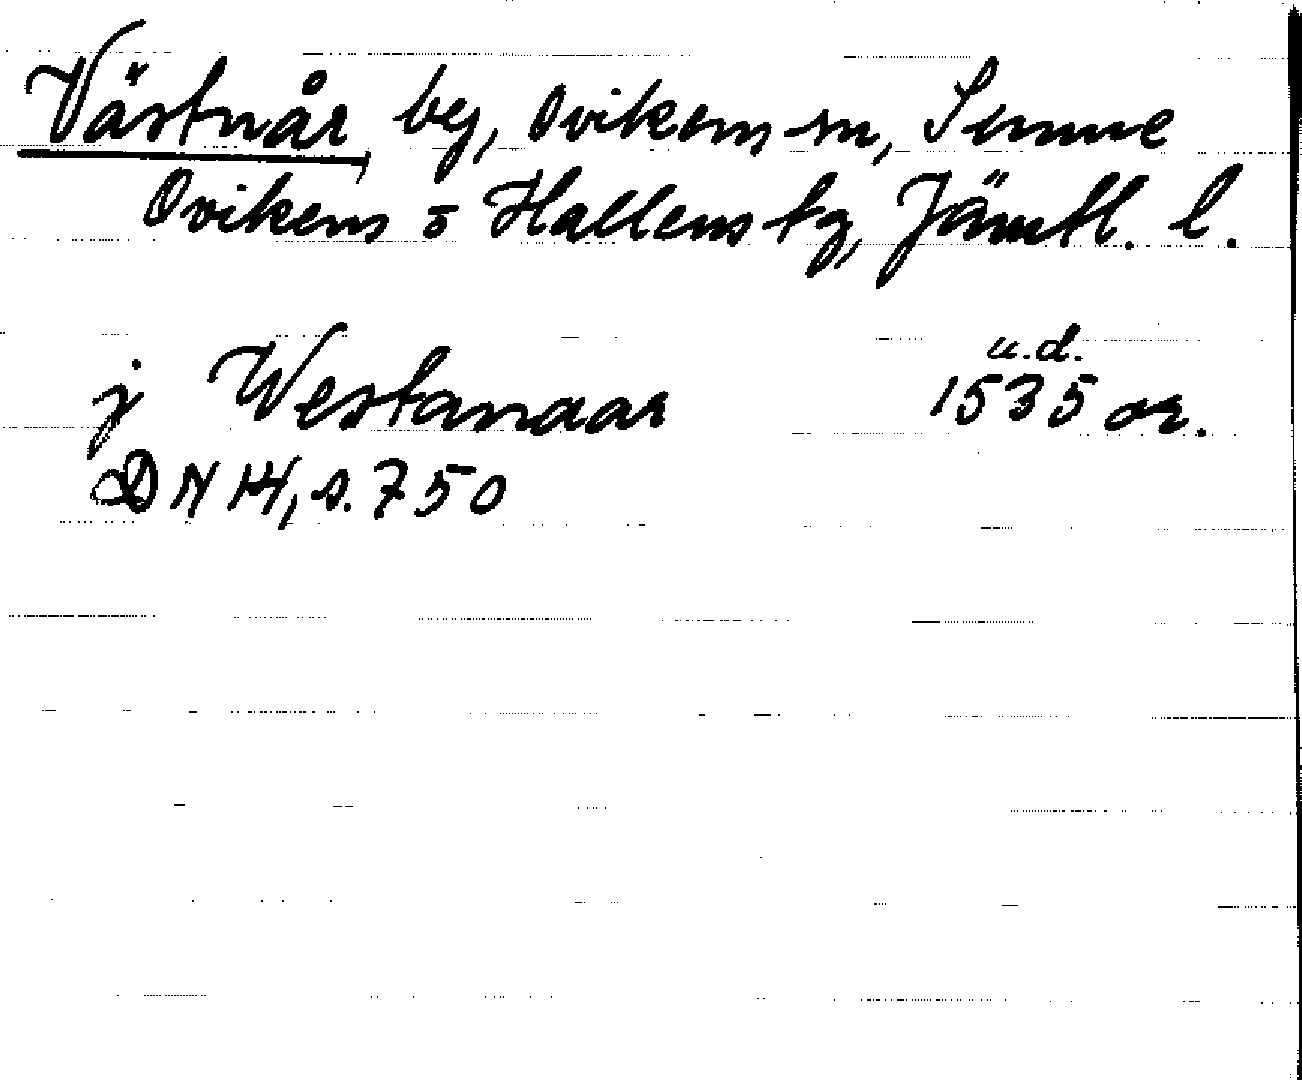 Västnår by, Ovikens sn, Sunne
Ovikens o Hallens tg, Jämtl. l.
u.d.
j Westanaar 1535 or.
DN 14, s. 750